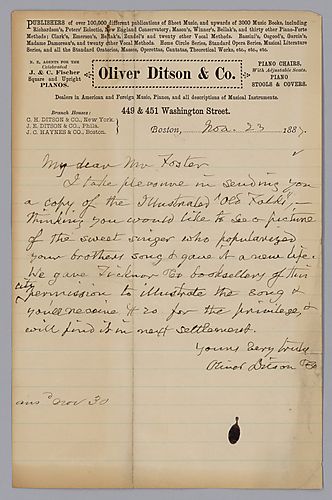 PUBLISHERS of over 100,000 different publications of Sheet Music, and upwards of 3000 Music Books, including
Richardson's, Peters' Eclectic, New England Conservatory, Mason's, Winner's, Bellak's, and thirty other Piano-Forte
Methods; Clark's, Emerson's, Bellak's, Zundel's and twenty other Organ Methods. Bassini's, Ongood's, Garcia's,
Madame Damoreau's, and twenty other Vocal Methods. Home Circle Series, Standard Opera Series, Musical Literature
Series, and all the Standard Oratorios, Masses, Operettas, Cantatas, Theoretical Works, etc., etc., etc.
N. E. AGENTS FOR THE
Celebrated
J. & C. Fischer
Square and Upright
PIANOS.
Oliver Ditson & Co.
PIANO CHAIRS,
With Adjustable Seats.
PIANO
STOOLS & COVERS.
Dealers in American and Foreign Music, Pianos, and all descriptions of Musical Instruments.
449 & 451 Washington Street.
Branch Houses:
C. H. DITSON & CO., New York.
J. E. DITSON & CO., Phila.
J. C. HAYNES & CO., Boston.
Boston, Nov. 23 1887.
My dear Mr Foster
I take pleasure in sending you
a copy of the Illustrated "Old Folks",
thinking you would like to see a picture
of the sweet singer who popularized
your brothers song & gave it a new life.
We gave Ticknor & Co booksellers of this
city permission to illustrate the song &
you'll receive $20 for the privilege, &
will find it in next settlement.
Yours very truly
Oliver Ditson & Co
ansd Nov 30